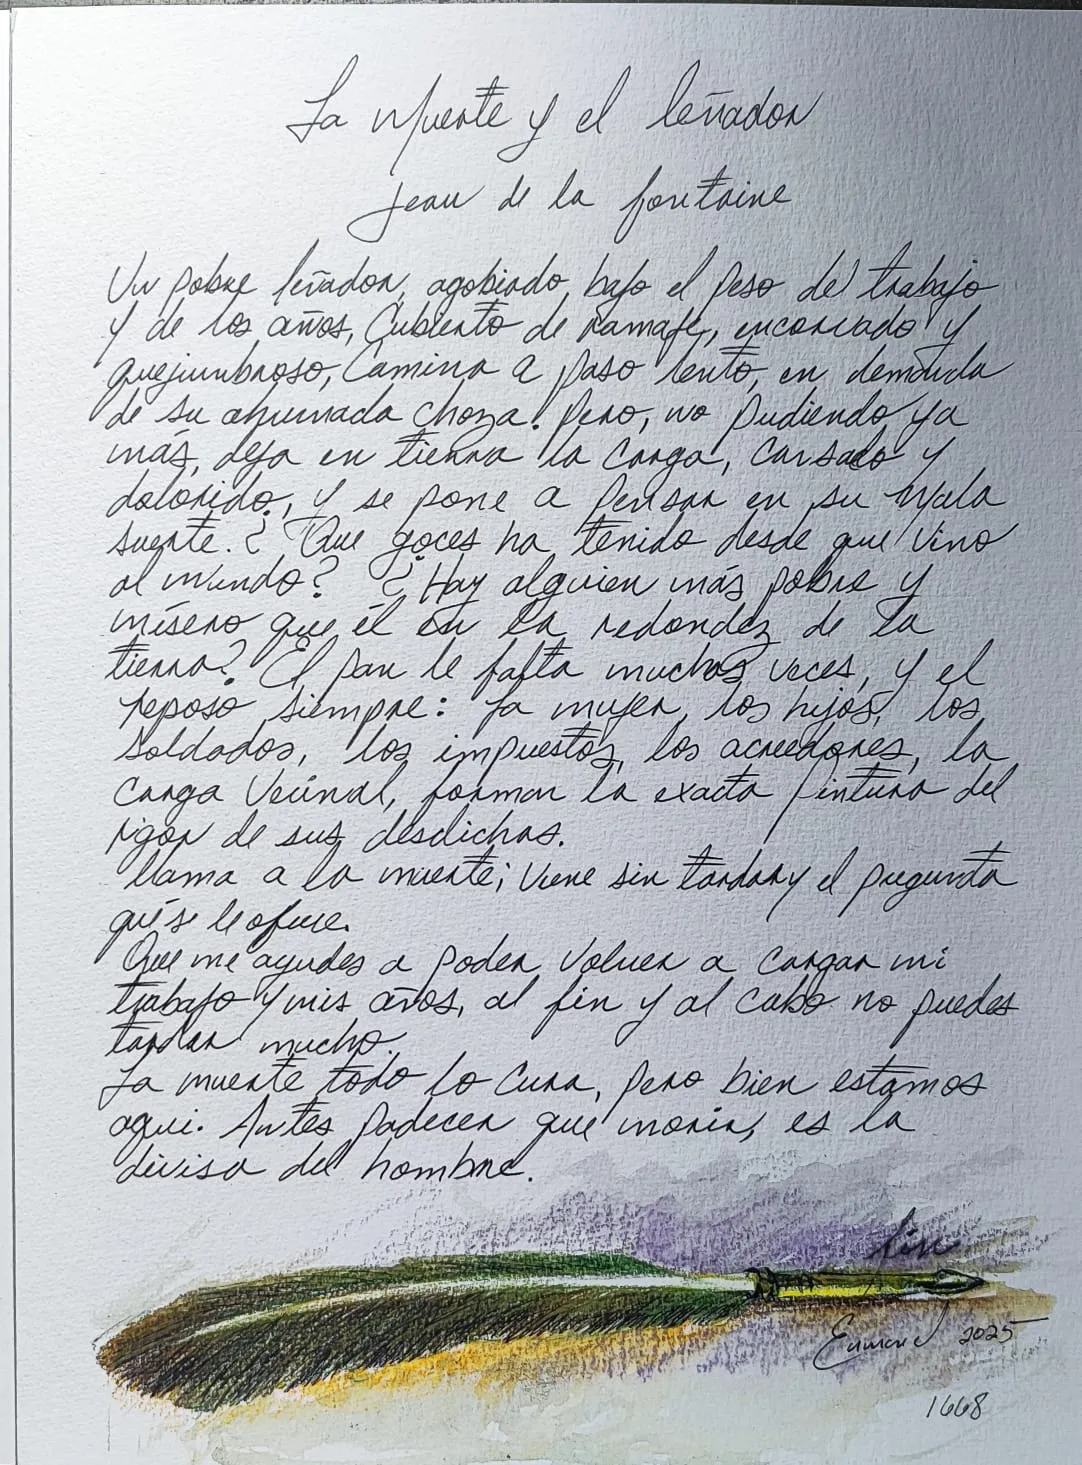 La Muerte y el leñador
Jean de la fontaine
Un pobre leñador, agobiado bajo el peso del trabajo
y de los años, Cubierto de ramaje, encorvado y
quejumbroso, Camina a paso lento, en demanda
de su ahumada choza. Pero, no pudiendo ya
más, deja en tierra la carga, cansado y
dolorido, y se pone a pensar en su mala
suerte. ¿Que goces ha tenido desde que vino
al mundo? ¿Hay alguien más pobre y
mísero que él en la redondez de la
tierra? El pan le falta muchas veces, y el
reposo siempre: La mujer, los hijos, los
soldados, los impuestos, los acreedores, la
carga vecinal, forman la exacta pintura del
rigor de sus desdichas.
llama a la muerte; viene sin tardar y el pregunta
qué se le ofrece.
Que me ayudes a poder volver a cargar mi
trabajo y mis años, al fin y al cabo no puedes
tardar mucho.
La muerte todo lo cura, pero bien estamos
aqui. Antes padecer que morir, es la
divisa del hombre.
fin
2025
1668